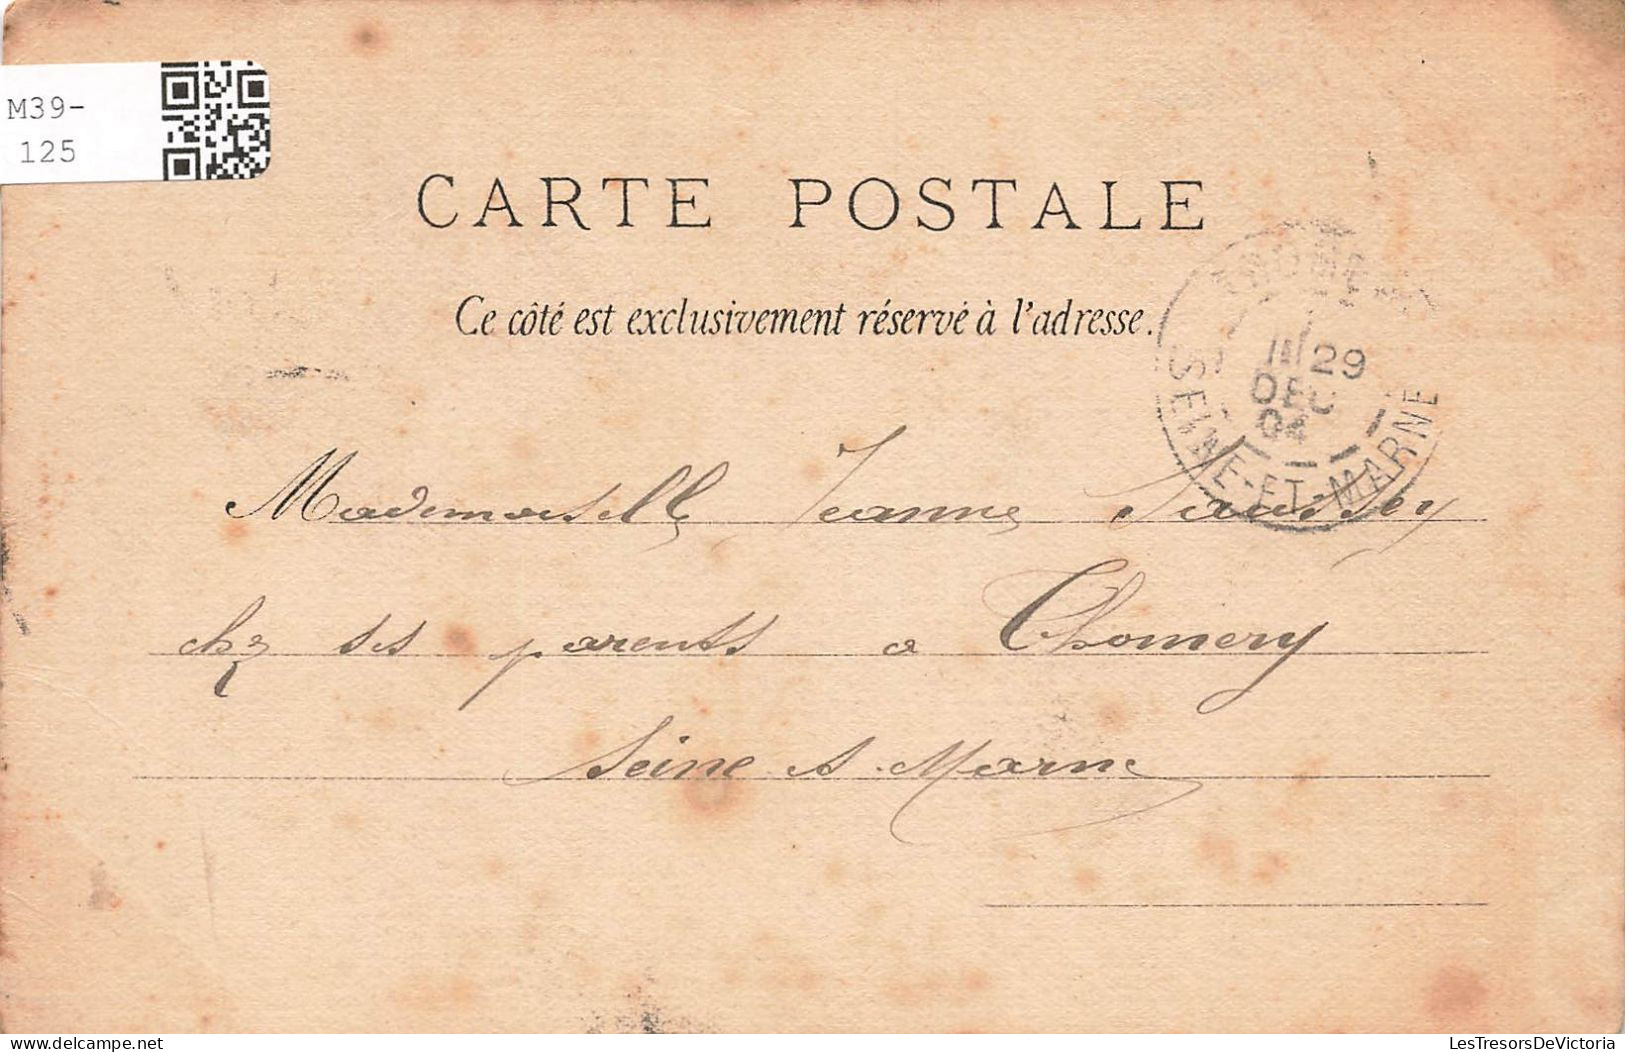 M39-
125
CARTE POSTALE
Ce côté est exclusivement réservé à l'adresse.
29
DEC
04
SEINE-ET-MARNE
Mademoiselle Jeanne Saussey
chez ses parents a Thomery
Seine et Marne
delcampe.net
LesTresorsDeVictoria